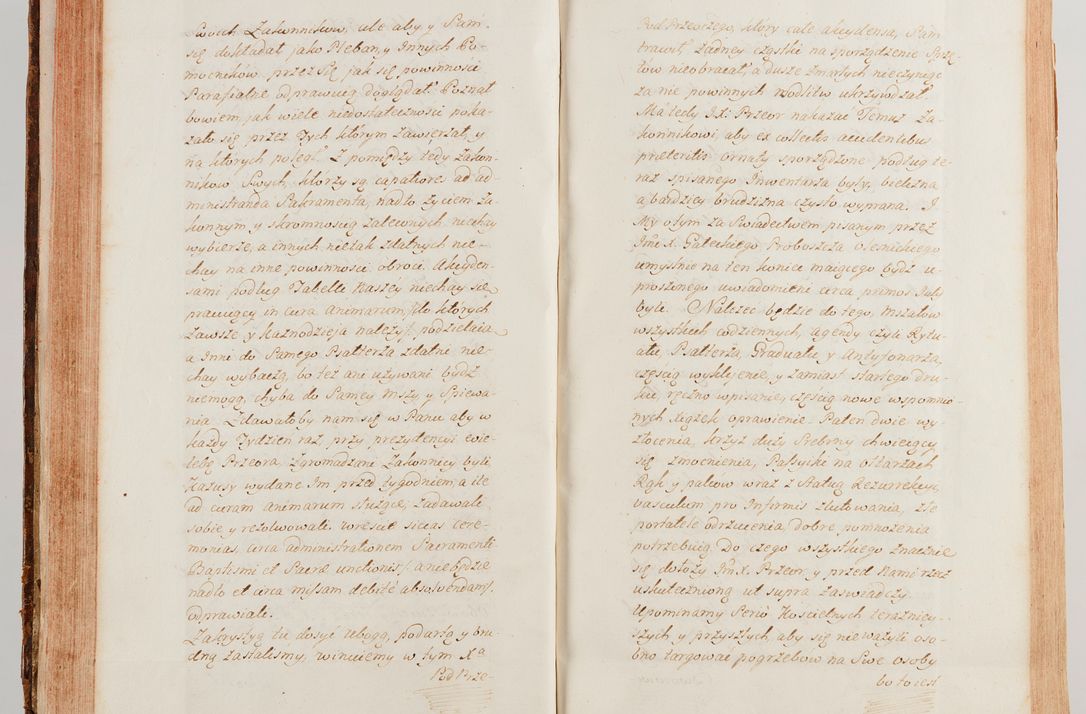 swoich Zakonnikow, ale aby y Sam
się dokładał jako Pleban, y Innych Po-
mocnikow przez Się jak się powinnosci
Parafialne odprawuią doglądał. Poznał
bowiem jak wiele niedostatecznosci poka-
zało się przez Tych ktorym zawierzał, y
na ktorych poległ. Z pomiędzy tedy Zakon-
nikow Swych, ktorzy są capatiores ad ad-
ministranda Sakramenta, nadto życiem Za-
konnym y skromnoscią zaleconych niechay
wybierze, a innych nie tak zdatnych nie-
chay na inne powinnosci obroci. Akcyden-
sami podług Tabelli Naszey niechay się
pracuiący in cura Animarum, /do ktorych
zawsze y Kaznodzieja należy/ podzielaią
a Inni do Samego Psałterza zdatni nie-
chay wybaczą, bo też ani używani bydź
niemogą, chyba do Samey Mszy, y Spiewa-
nia. Zdawałoby nam się w Panu aby w
każdy Tydzien raz przy prezydencyi Cie-
lebę Przeora Zgromadzani Zakonnicy byli
Kazusy wydane Im przed tygodniem, a ile
ad curam animarum służące, zadawali
sobie y rezolwowali. wreście siccas cere-
monias, circa administrationem Sacramenti
Baptismi et Sacræ unctionis, a niebędzie
nadto et circa missam debitè absolvendam,
odprawiali.
Zakrystyą tu dosyć ubogą, podartą y bru-
dną zastalismy, winuiemy w tym Xa
Pod Prze-
Pod Przeoszego, ktory całe akcydensa, Sam
trawił żadney cząstki na sporządzenie Sprzę-
tow nieobracał, a dusze Zmarłych nieczyniąc
za nie powinnych modlitw ukrzywdzał.
Ma tedy JX: Przeor nakazać Temuż Za-
konnikowi, aby ex collectis accidentibus
præteritis ornaty sporządzone podług te-
raz spisanego Inwentarza były, bielizna
a bardziey brudzizna czysto wyprana. I
My o tym za Swiadectwem pisanym przez
Jmci X. Gałeckiego Proboszcza Olesnickiego
umyślnie na ten koniec maiącego bydź u-
proszonego uwiadomieni circa primos Julij
byli. Należeć będzie do tego, Mszałow
wszystkich codziennych, agendy czyli Rytu-
ału, Psałterza, Graduału y Antyfonarza,
częścią wyklejenie, y zamiast starłego dru-
ku, ręczno wpisanie, częścią nowe wspomnio-
nych xiążek oprawienie. Paten dwie wy-
złocenia, krzyż duży Srebrny chwieiący
się zmocnienia, Passyiki na ołtarzach
Rąk y palcow wraz z Statuą Rezurrekcyi,
vasculum pro Infirmis zlutowania, złe
portatele odrzucenia, dobre pomnożenia
potrzebuią. Do czego wszystkiego znacznie
się dołoży JmX. Przeor y przed Nami rzecz
uskutecznioną ut supra zaswiadczy.
Upominamy Seriò Koscielnych teraźniey-
szych, y przyszłych, aby się nieważyli oso-
bno targować pogrzebow na Swe osoby
bo to iest